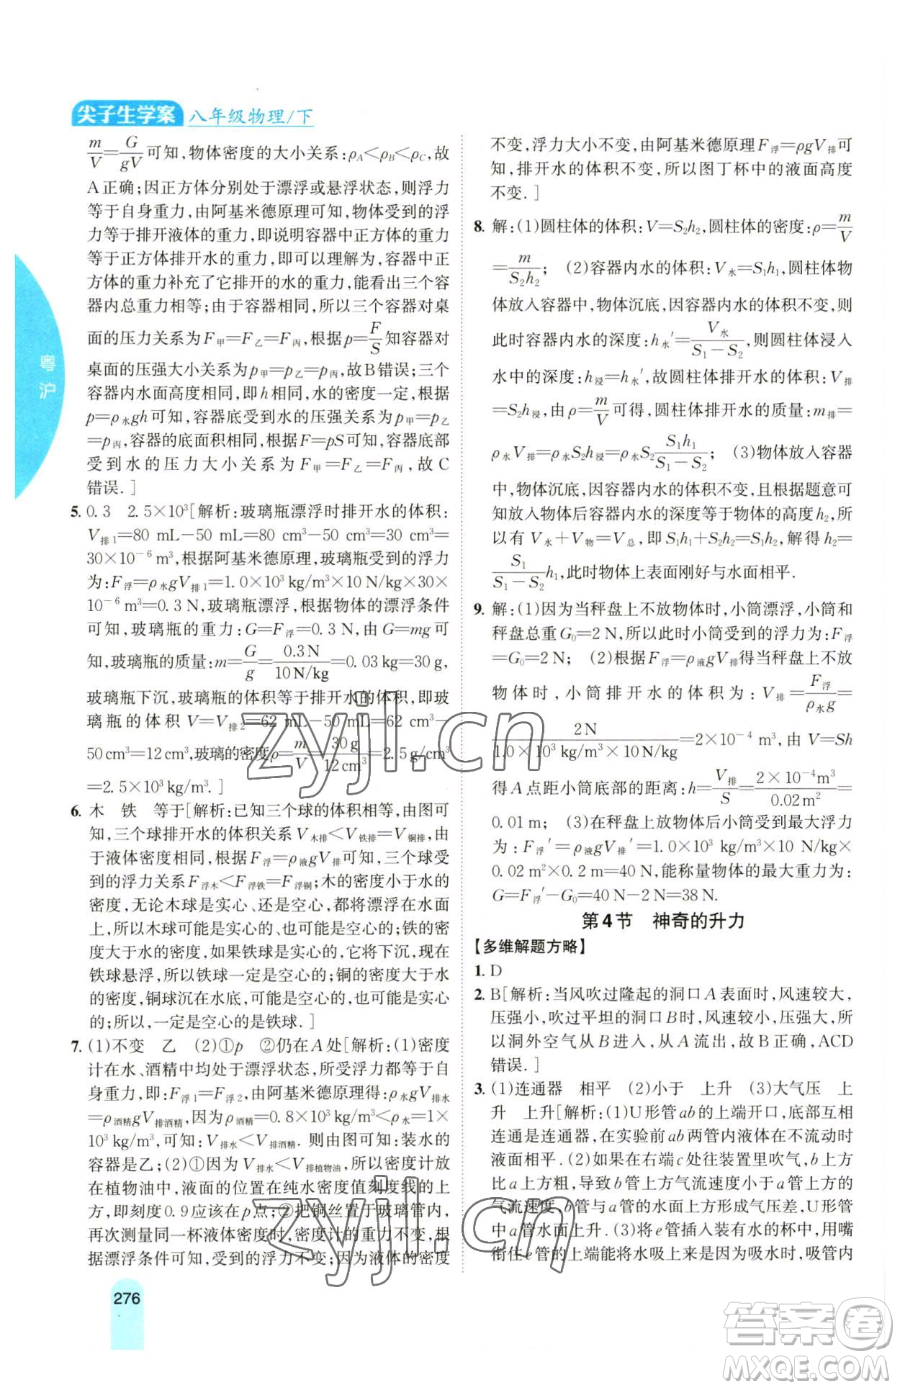 尖子生学案 八年级物理/下
m/V=G/gV可知,物体密度的大小关系:ρA<ρB<ρC,故
A正确;因正方体分别处于漂浮或悬浮状态,则浮力
等于自身重力,由阿基米德原理可知,物体受到的浮
力等于排开液体的重力,即说明容器中正方体的重
力等于正方体排开水的重力,即容器中正
方体的重力补充了它排开的水的重力,能看出三个容
器内总重力相等;由于容器相同,所以三个容器对桌
面的压力关系为F甲=F乙=F丙,根据p=F/S知容器对
桌面的压强大小关系为p甲=p乙=p丙,故B错误;三个
容器内水面高度相同,即h相同,水的密度一定,根据
p=ρ水gh可知,容器底受到水的压强关系为p甲=p乙
=p丙,容器的底面积相同,根据F=pS可知,容器底
受到水的压力大小关系为F甲=F乙=F丙,故C
错误.]
5. 0.3 2.5×10³[解析:玻璃瓶漂浮时排开水的体积:
V排1=80 mL-50 mL=80 cm³-50 cm³=30 cm³=
30×10⁻⁶ m³,根据阿基米德原理,玻璃瓶受到的浮力
为:F浮=ρ水gV排1=1.0×10³kg/m³×10 N/kg×30
×10⁻⁶m³=0.3 N,玻璃瓶漂浮,根据物体的漂浮条件
可知,玻璃瓶的重力:G=F浮=0.3 N,由G=mg可
知,玻璃瓶的质量:m=G/g=0.3 N/10 N/kg=0.03 kg=30 g,
玻璃瓶下沉,玻璃瓶的体积等于排开水的体积,即玻
璃瓶的体积V=V排2=62 mL-50 mL=62 cm³-
50 cm³=12 cm³,玻璃的密度ρ=m/V=30 g/12 cm³=2.5 g/cm³
=2.5×10³kg/m³.]
6. 木 铁 等于[解析:已知三个球的体积相等,由图可
知,三个球排开水的体积关系V木排<V铁排=V铜排,由
于液体密度相同,根据F浮=ρ液gV排可知,三个球受
到的浮力F浮木<F浮铁=F浮铜;木的密度小于水的密
度,无论木球是实心、还是空心的,都将漂浮在水面;
铁的密度大于水的密度,如果铁球是实心的,将下沉,现在
铁球悬浮,所以铁球一定是空心的;铜的密度大于水的
密度,铜球沉在水底,可能是空心的,也可能是实心
的;所以,一定是空心的是铁球.]
7. (1)不变 乙 (2)①p ②仍在A处[解析:(1)密度
计在水、酒精中均处于漂浮状态,所受浮力都等于重
力,即:F浮1=F浮2,由阿基米德原理得:ρ水gV排水=
ρ酒精gV排酒精,因为ρ酒精=0.8×10³kg/m³<ρ水=1×
10³ kg/m³,可知:V排水<V排酒精.则由图可知:装水的
的容器是乙;(2)①因V排水=V排植物油,所以密度计放
在植物油中,液面的位置在纯水密度值刻度线的上
方,即刻度0.9应在p点;②把铜丝置于玻璃管内,
再次测量同一杯液体密度时,密度计的重力不变,根据
漂浮条件可知,受到的浮力不变,因为液体的密度
不变,浮力大小不变,由阿基米德原理F浮=ρgV排可
知,排开水的体积不变,所以图丁杯中的液面高度
不变.]
8. 解:(1)圆柱体的体积:V=S₂h₂,圆柱体的密度:ρ=m/V
=m/S₂h₂;(2)容器内水的体积:V水=S₁h₁,圆柱体物
体放入容器中,物体沉底,因容器内水的体积不变,则
此时容器内水的深度:h水′=V水/S₁-S₂,圆柱体浸入
水中的深度:h浸=h水′,故圆柱体排开水的体积:V排
=S₂h浸,由ρ=m/V可得,圆柱体排开水的质量:m排=
ρ水V排=ρ水S₂h浸=ρ水S₂S₁h₁/S₁-S₂;(3)物体放入容器
中,物体沉底,因容器内水的体积不变,根据题意可知
知物体放入后容器内水的深度等于物体的高度h₂,所
以有V水+V物=V总,即S₁h₁+S₂h₂=S₁h₂,解得h₂=
S₁/S₁-S₂h₁时物体上表面刚好与水面相平.
9. 解:(1)因为当秤盘上不放物体时,小筒漂浮,小筒和
秤盘总重G₀=2 N,所以,此时小筒受到的浮力F浮
=G₀=2 N;(2)根据F浮=ρ液gV排得当秤盘上不放
物体时,小筒排开水的体积为:V排=F浮/ρ水g=
2 N/1.0×10³ kg/m³×10 N/kg=2×10⁻⁴ m³,由V=Sh
得A点距小筒底部的距离:h=V排/S=2×10⁻⁴m³/0.02 m²=
0.01 m;(3)因为在秤盘上放物体后小筒受到的浮力
为:F浮′=ρ液gV排′=1.0×10³ kg/m³×10 N/kg×
0.02 m²×0.2 m=40 N,能称量物体的最大重力为:
G=F浮′-G₀=40 N-2 N=38 N.
第4节 神奇的升力
【多维解题方略】
1. D
2. B[解析:当风吹过隆起的洞口A表面时,风速较大,
压强小,吹过平坦的洞口B时,风速较小,压强大,所
以洞外空气从B进入,从A流出,故B正确,ACD
错误.]
3. (1)连通器 相平 (2)小于 上升 (3)大气压 上
升 上升[解析:(1)U形管ab的上端开口,底部相互
连通是连通器,在实验前ab两管内液体在不流动时
液面相平;(2)因为在右端c处往里面吹气,b上方比
a上方气流速度大,b管的水面上方形成气压差,上方的
气流速度小,压强大,a管的水面上方形成气压差,所以b
管中a管水面上升.(3)将e管插入装有水的杯中,用嘴
衔住e管的上端能将水吸上来是在吸水时,吸管内
276
粤沪
zyjl.cn
zyjl.cn
答案圈
MXQE.COM